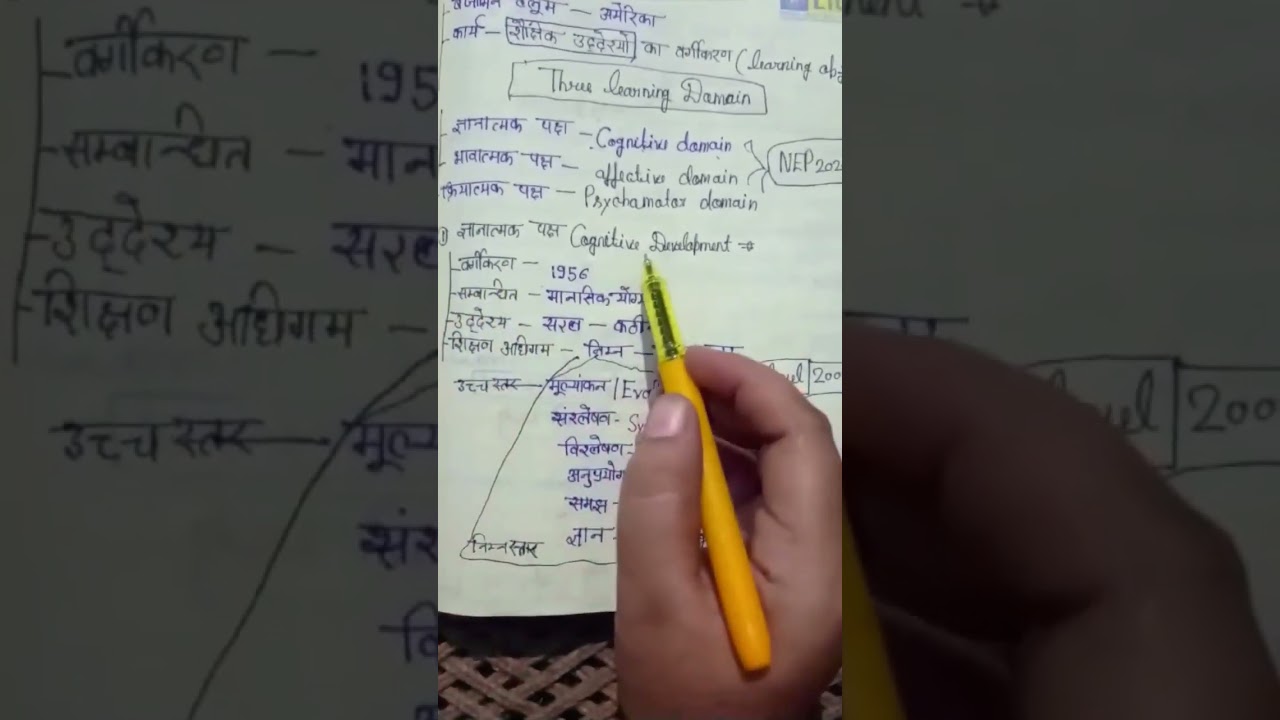 बेंजामिन ब्लूम — अमेरिका
कार्य — शैक्षिक उद्देश्यों का वर्गीकरण (learning
Three learning Damain
ज्ञानात्मक पक्ष — Cognitive domain
भावात्मक पक्ष — affective domain
NEP 202
क्रियात्मक पक्ष — Psychamator domain
① ज्ञानात्मक पक्ष Cognitive Development →
वर्गीकरण — 1956
सम्बान्धित — मानसिक
उद्देश्य — सरल —
शिक्षण अधिगम — निम्न —
उच्च स्तर — मूल्यांकन /
संश्लेषण -
200
विश्लेषण -
अनुप्रयोग
समझ -
ज्ञान -
निम्न स्तर